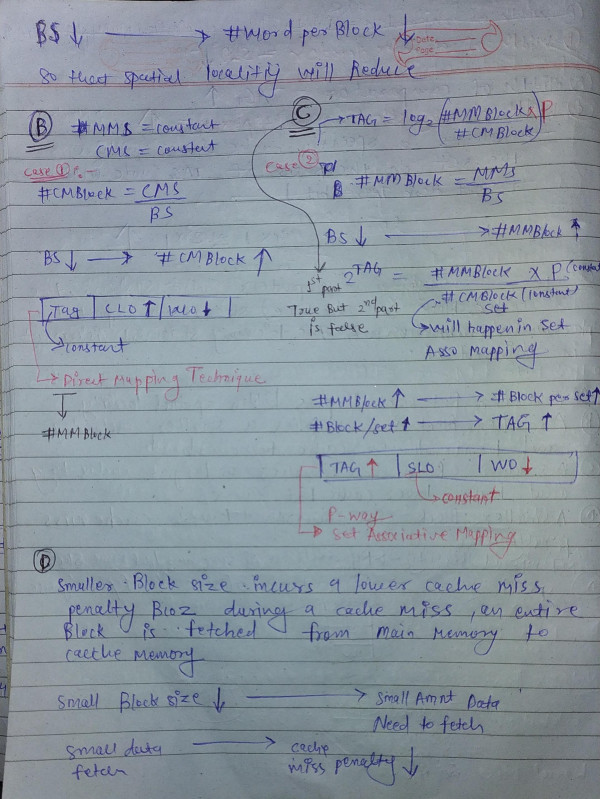 BS ↓ → #Word per Block ↓
Date
Page
So that spatial locality will Reduce
(B) #MMS = constant
CMS = constant
Case (1):-
#CMBlock = CMS / BS
BS ↓ → #CMBlock ↑
Tag | CLO ↑ | WO ↓
constant
Direct Mapping Technique
#MMBlock
(C) TAG = log₂ (#MMBlocks / #CMBlock) x P
Case (2)
#MMBlock = MMS / BS
BS ↓ → #MMBlock ↑
1st part True But 2nd part is false
2^TAG = #MMBlock x P (constant) / #CMBlock (constant)
set
will happen in Set
Asso mapping
#MMBlock ↑ → #Block per set ↑
#Block/set ↑ → TAG ↑
TAG ↑ | SLO | WO ↓
constant
P-way
Set Associative Mapping
(D)
Smaller Block size incurs a lower cache miss
penalty Bcoz during a cache miss, an entire
Block is fetched from main Memory to
cacche Memory
Small Block size ↓ → Small Amnt Data
Need to fetch
Small data → cache
fetch miss penalty ↓